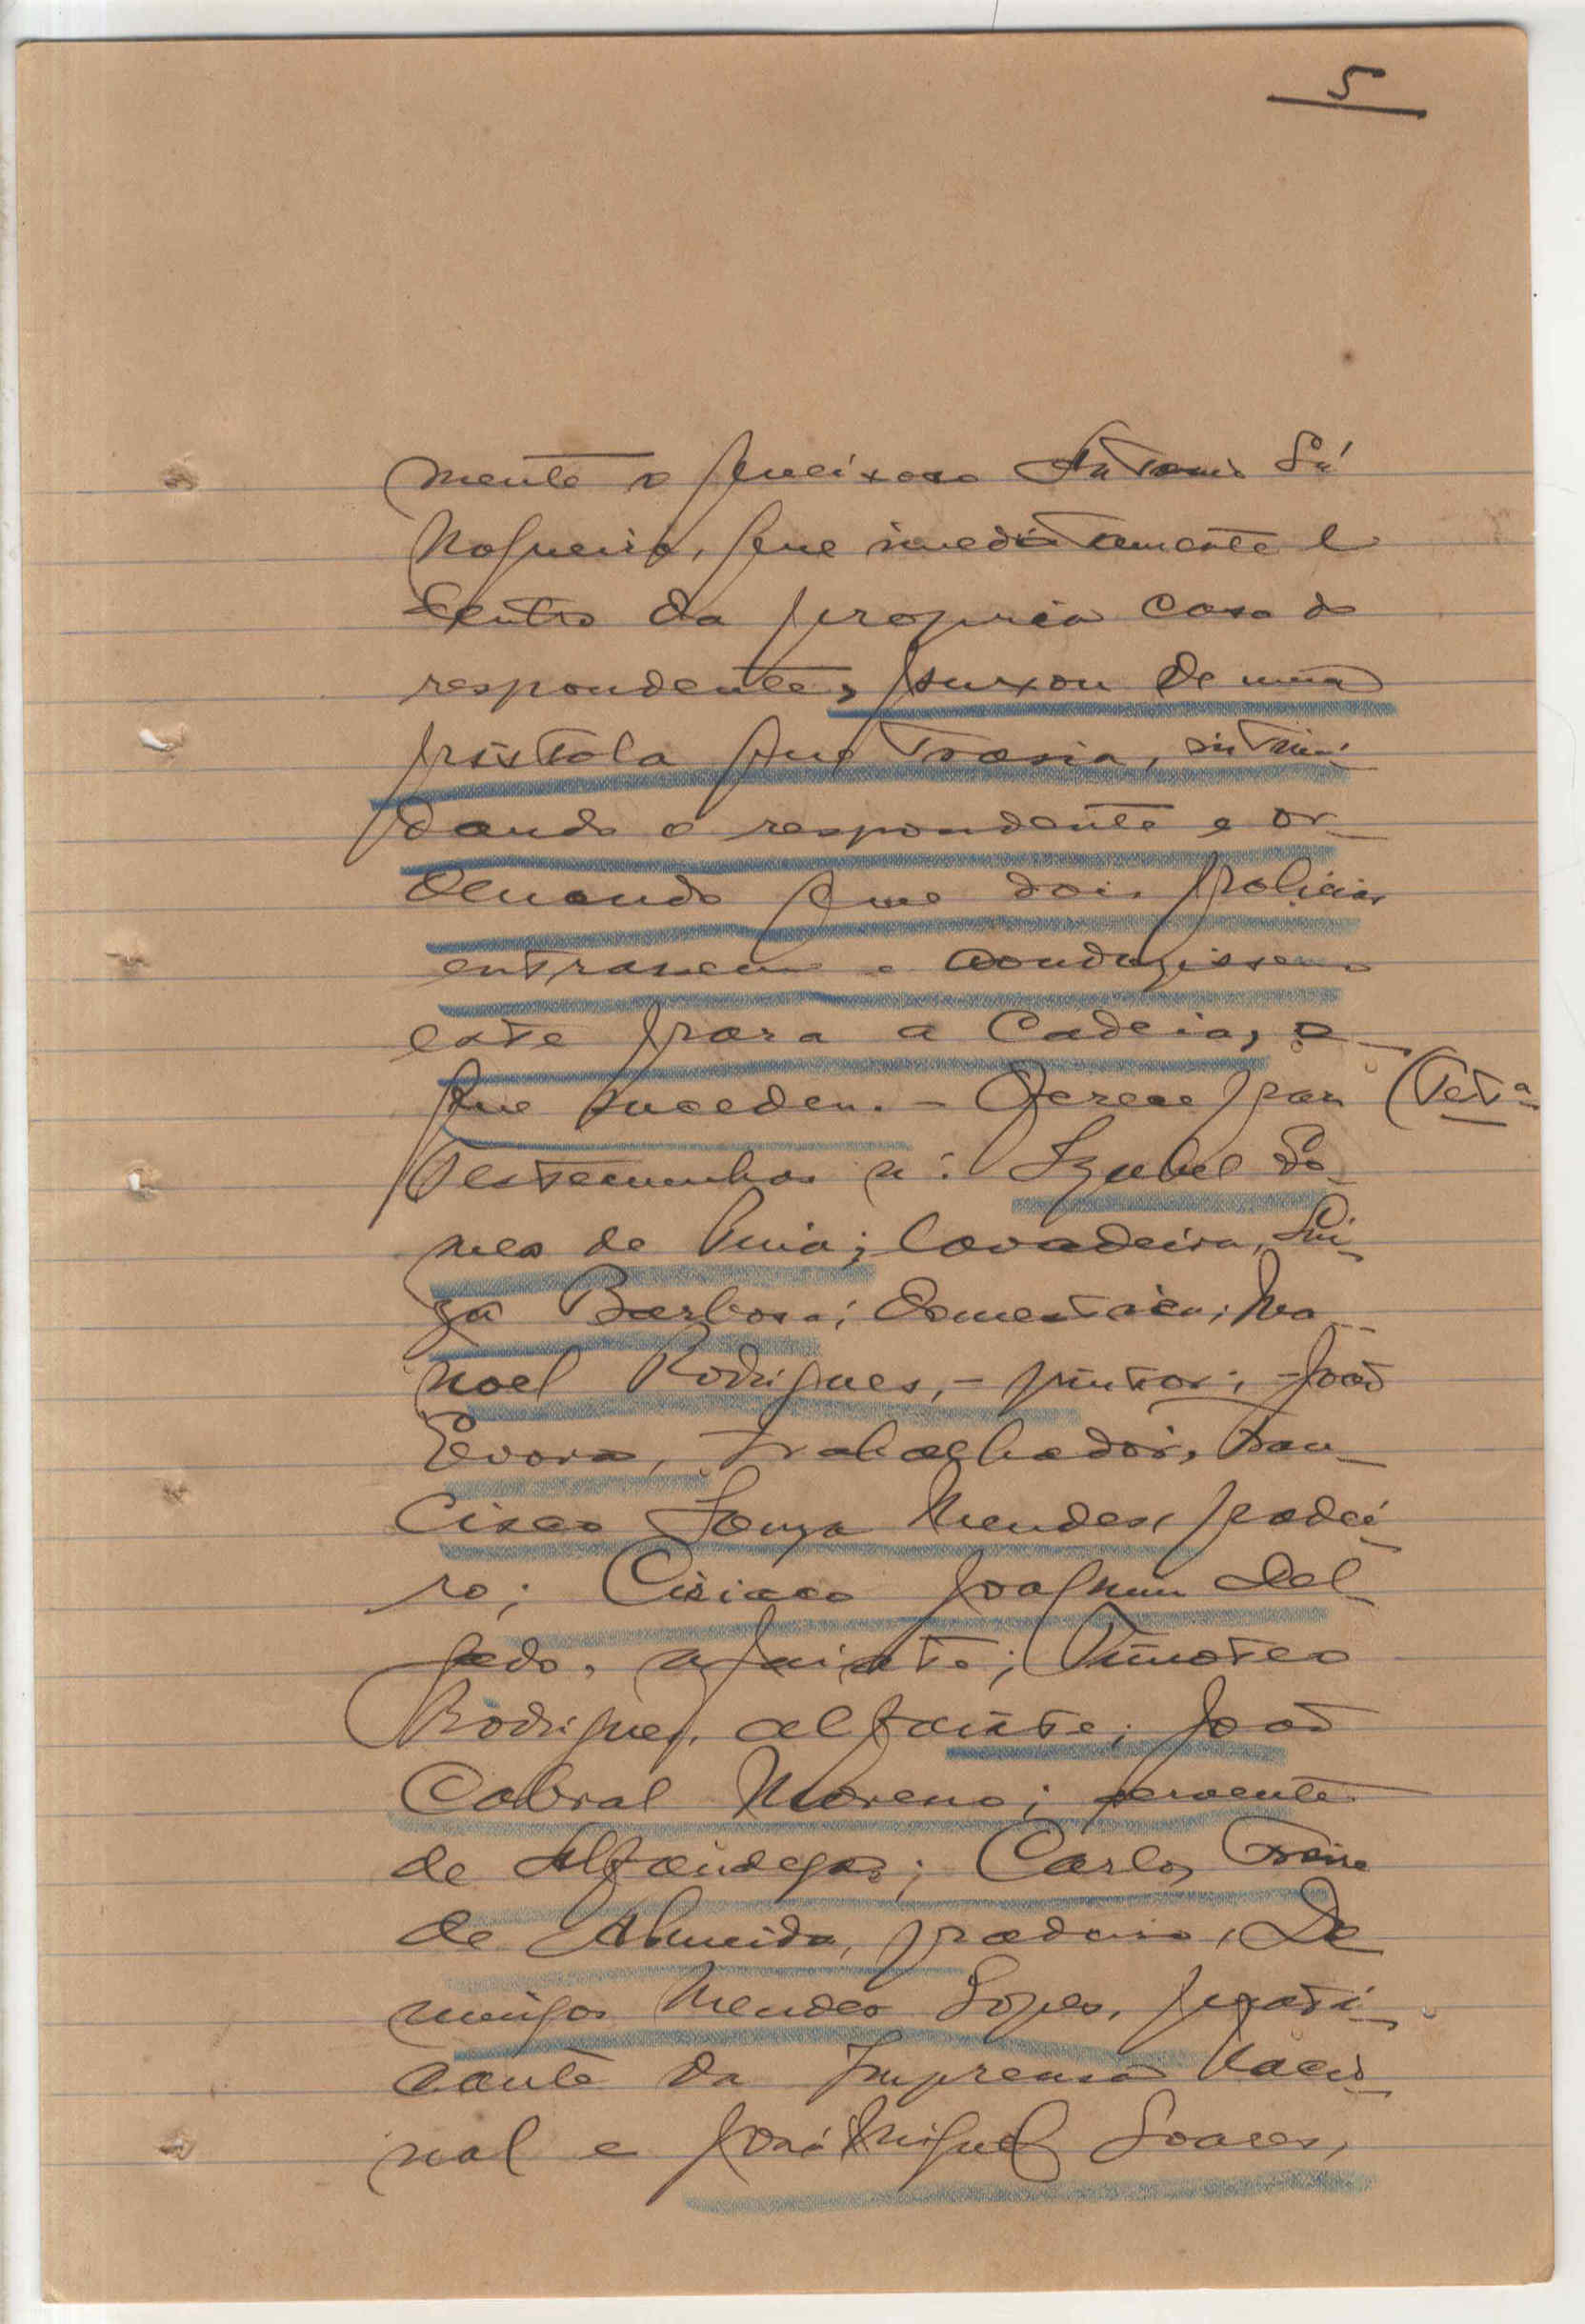 5
mente o queixoso Antonio Sá
Nogueira, que imediatamente e
dentro da propria casa do
respondente, puxou de uma
pistola que trasia, intimi-
dando o respondente e or-
denando que dois policias
entrassem e conduzissem
este para a Cadeia, o
que sucedeu. - Oferece por (Test.ª
Testemunhas a: Izabel Go-
mes de Pina; lavadeira, Lui-
za Barbosa; domestica; Ma-
noel Rodrigues, - pintor; - João
Evora, trabalhador, Fran-
cisco Souza Mendes, padei-
ro; Ciriaco Joaquim Del-
gado, alfaiate; Timoteo
Rodrigues, alfaiate; João
Cabral Moreno; servente
de Alfandega; Carlos Freire
de Almeida, padeiro, Do
mingos Mendes Lopes, prati-
cante da Imprensa Nacio-
nal e José Miguel Soares,